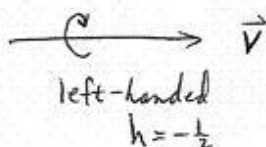 V⃗
left-handed
h = -½